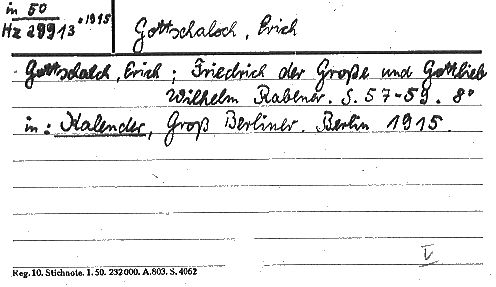 in 50
Hz 29913 • 1915
Gottschalch, Erich
Gottschalch, Erich; Friedrich der Große und Gottlieb
Wilhelm Rabener. S. 57-59. 8°
in: Kalender, Groß Berliner. Berlin 1915.
V
Reg. 10. Stichnote. 1. 50. 232000. A.803. S. 4062